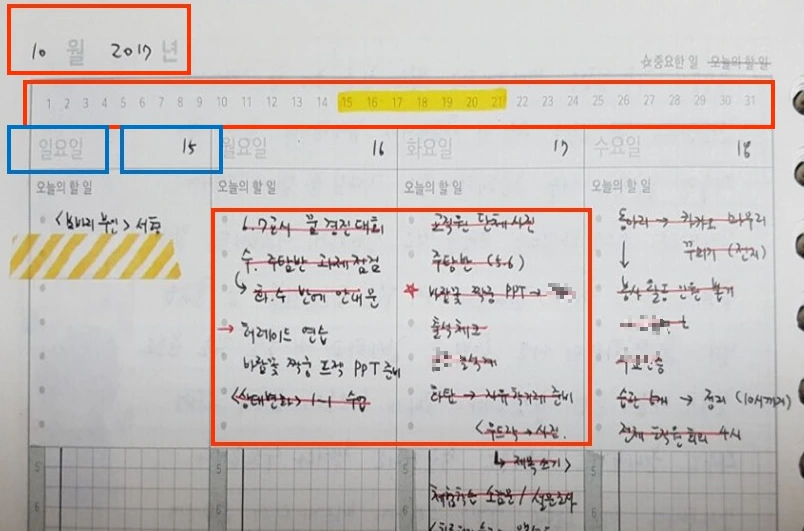 10 월 2017 년
☆중요한 일 오늘의 할 일
1 2 3 4 5 6 7 8 9 10 11 12 13 14 15 16 17 18 19 20 21 22 23 24 25 26 27 28 29 30 31
일요일 15 월요일 16 화요일 17 수요일 18
오늘의 할 일 오늘의 할 일 오늘의 할 일 오늘의 할 일
<보바리 부인> 서평
6.7교시 물 경진대회
수. 주탐반 과제 점검
↳ 화.수 반에 안내문
→ 퍼레이드 연습
바람꽃 짝궁 뜨작 PPT 준비
<상태변화> 1-1 수업
교직원 단체사진
주탐반 (5.6)
★ 바람꽃 짝궁 PPT →
출석체크
화탄 → 자유학기제 준비
<우드락 → 사진.
↳ 제목 쓰기>
체험학습 소감문 / 설문조사
동아리 → 카카오 마무리
↓ 꾸미기 (전지)
봉사활동 인원
→ 정리 (10시까지)
전체 교직원 회의 4시
5 5 5 5
6 6 6 6